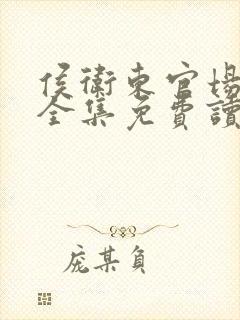 侯衛東官場
全集免費讀
庞某負